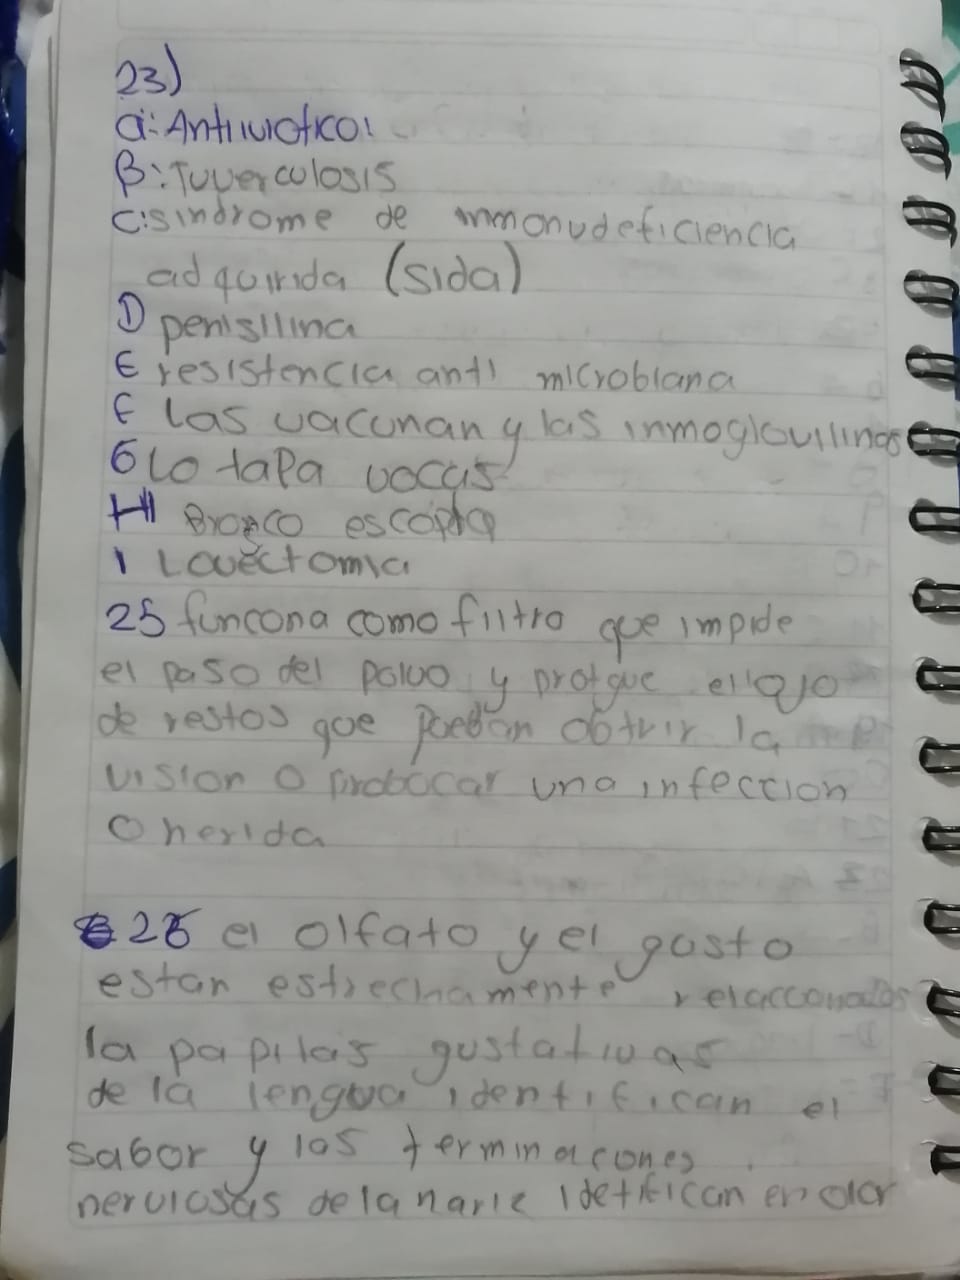 23)
a: Antiviotico!
B: Tuverculosis
C: sindrome de inmonudeficiencia
adquirida (sida)
D penisilina
E resistencia anti microbiana
F las vacunan y las inmoglovilinas
G Lo tapa vocas
H Bronco escopia
I Lovectomia
25 funcona como filtro que impide
el paso del polvo y protgue el ojo
de restos que puedan obtrir la
vision o probocar una infeccion
o herida
26 el olfato y el gusto
estan estrechamente relacconados
la papilas gustativas
de la lengua identifican el
sabor y los terminacones
nerviosas de la narie idetifican en olor